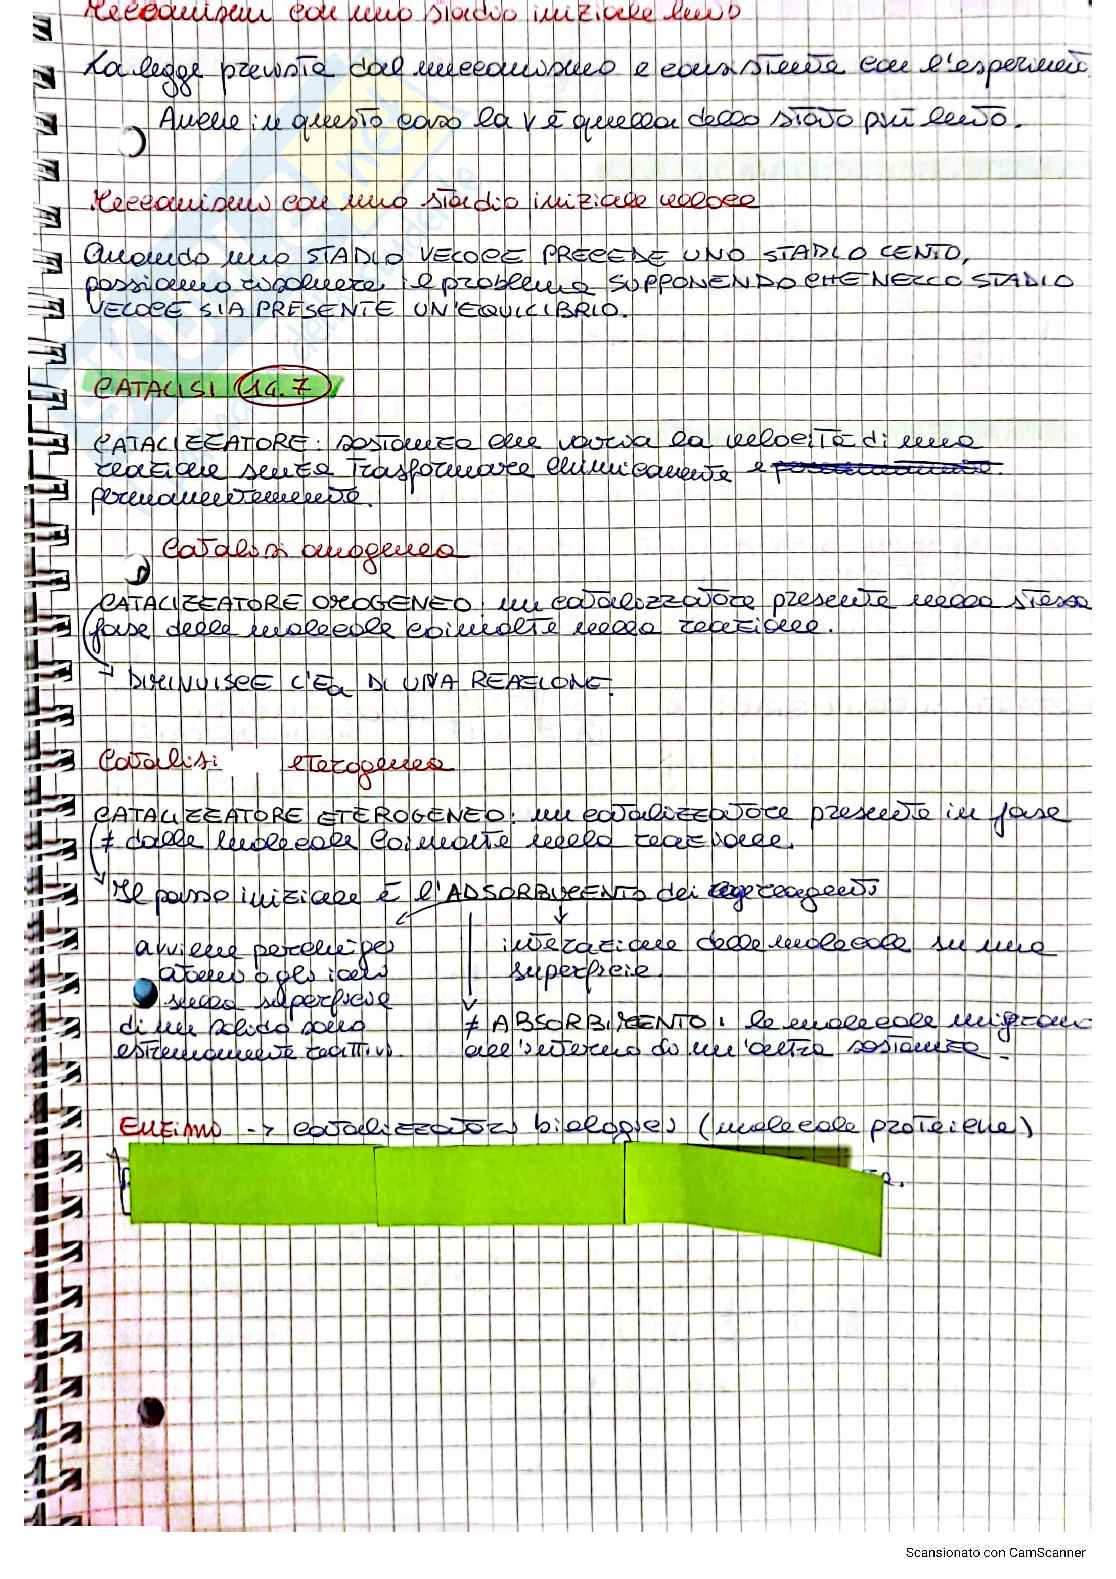 Meccanismi con uno stadio iniziale lento
La legge prevista dal meccanismo è consistente con l'esperimento
Anche in questo caso la v è quella dello stato più lento.
Meccanismo con uno stadio iniziale veloce
Quando uno STADIO VELOCE PRECEDE UNO STADIO LENTO,
possiamo risolvere il problema SUPPONENDO CHE NELLO STADIO
VELOCE SIA PRESENTE UN'EQUILIBRIO.
CATALISI 14.7
CATALIZZATORE: sostanza che varia la velocità di una
reazione senza trasformare chimicamente e
permanentemente.
Catalisi omogenea
CATALIZZATORE OMOGENEO: un catalizzatore presente nella stessa
fase delle molecole coinvolte nella reazione.
→ DIMINUISCE L'Ea DI UNA REAZIONE.
Catalisi eterogenea
CATALIZZATORE ETEROGENEO: un catalizzatore presente in fase
≠ dalle molecole coinvolte nella reazione.
→ Il passo iniziale è l'ADSORBIMENTO dei reagenti
avviene perché gli
atomi o gli ioni
sulla superficie
di un solido sono
estremamente reattivi.
interazione delle molecole su una
superficie.
≠ ABSORBIMENTO: le molecole migrano
all'interno di un'altra sostanza.
Enzimi → catalizzatori biologici (molecole proteiche)
Scansionato con CamScanner